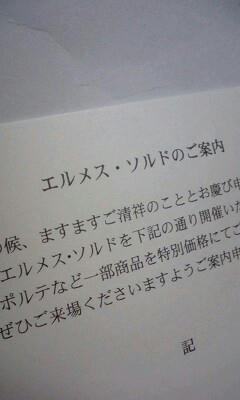 エルメス・ソルドのご案内
の候、ますますご清祥のこととお慶び申
エルメス・ソルドを下記の通り開催いた
ポルテなど一部商品を特別価格にてご
ぜひご来場くださいますようご案内申
記